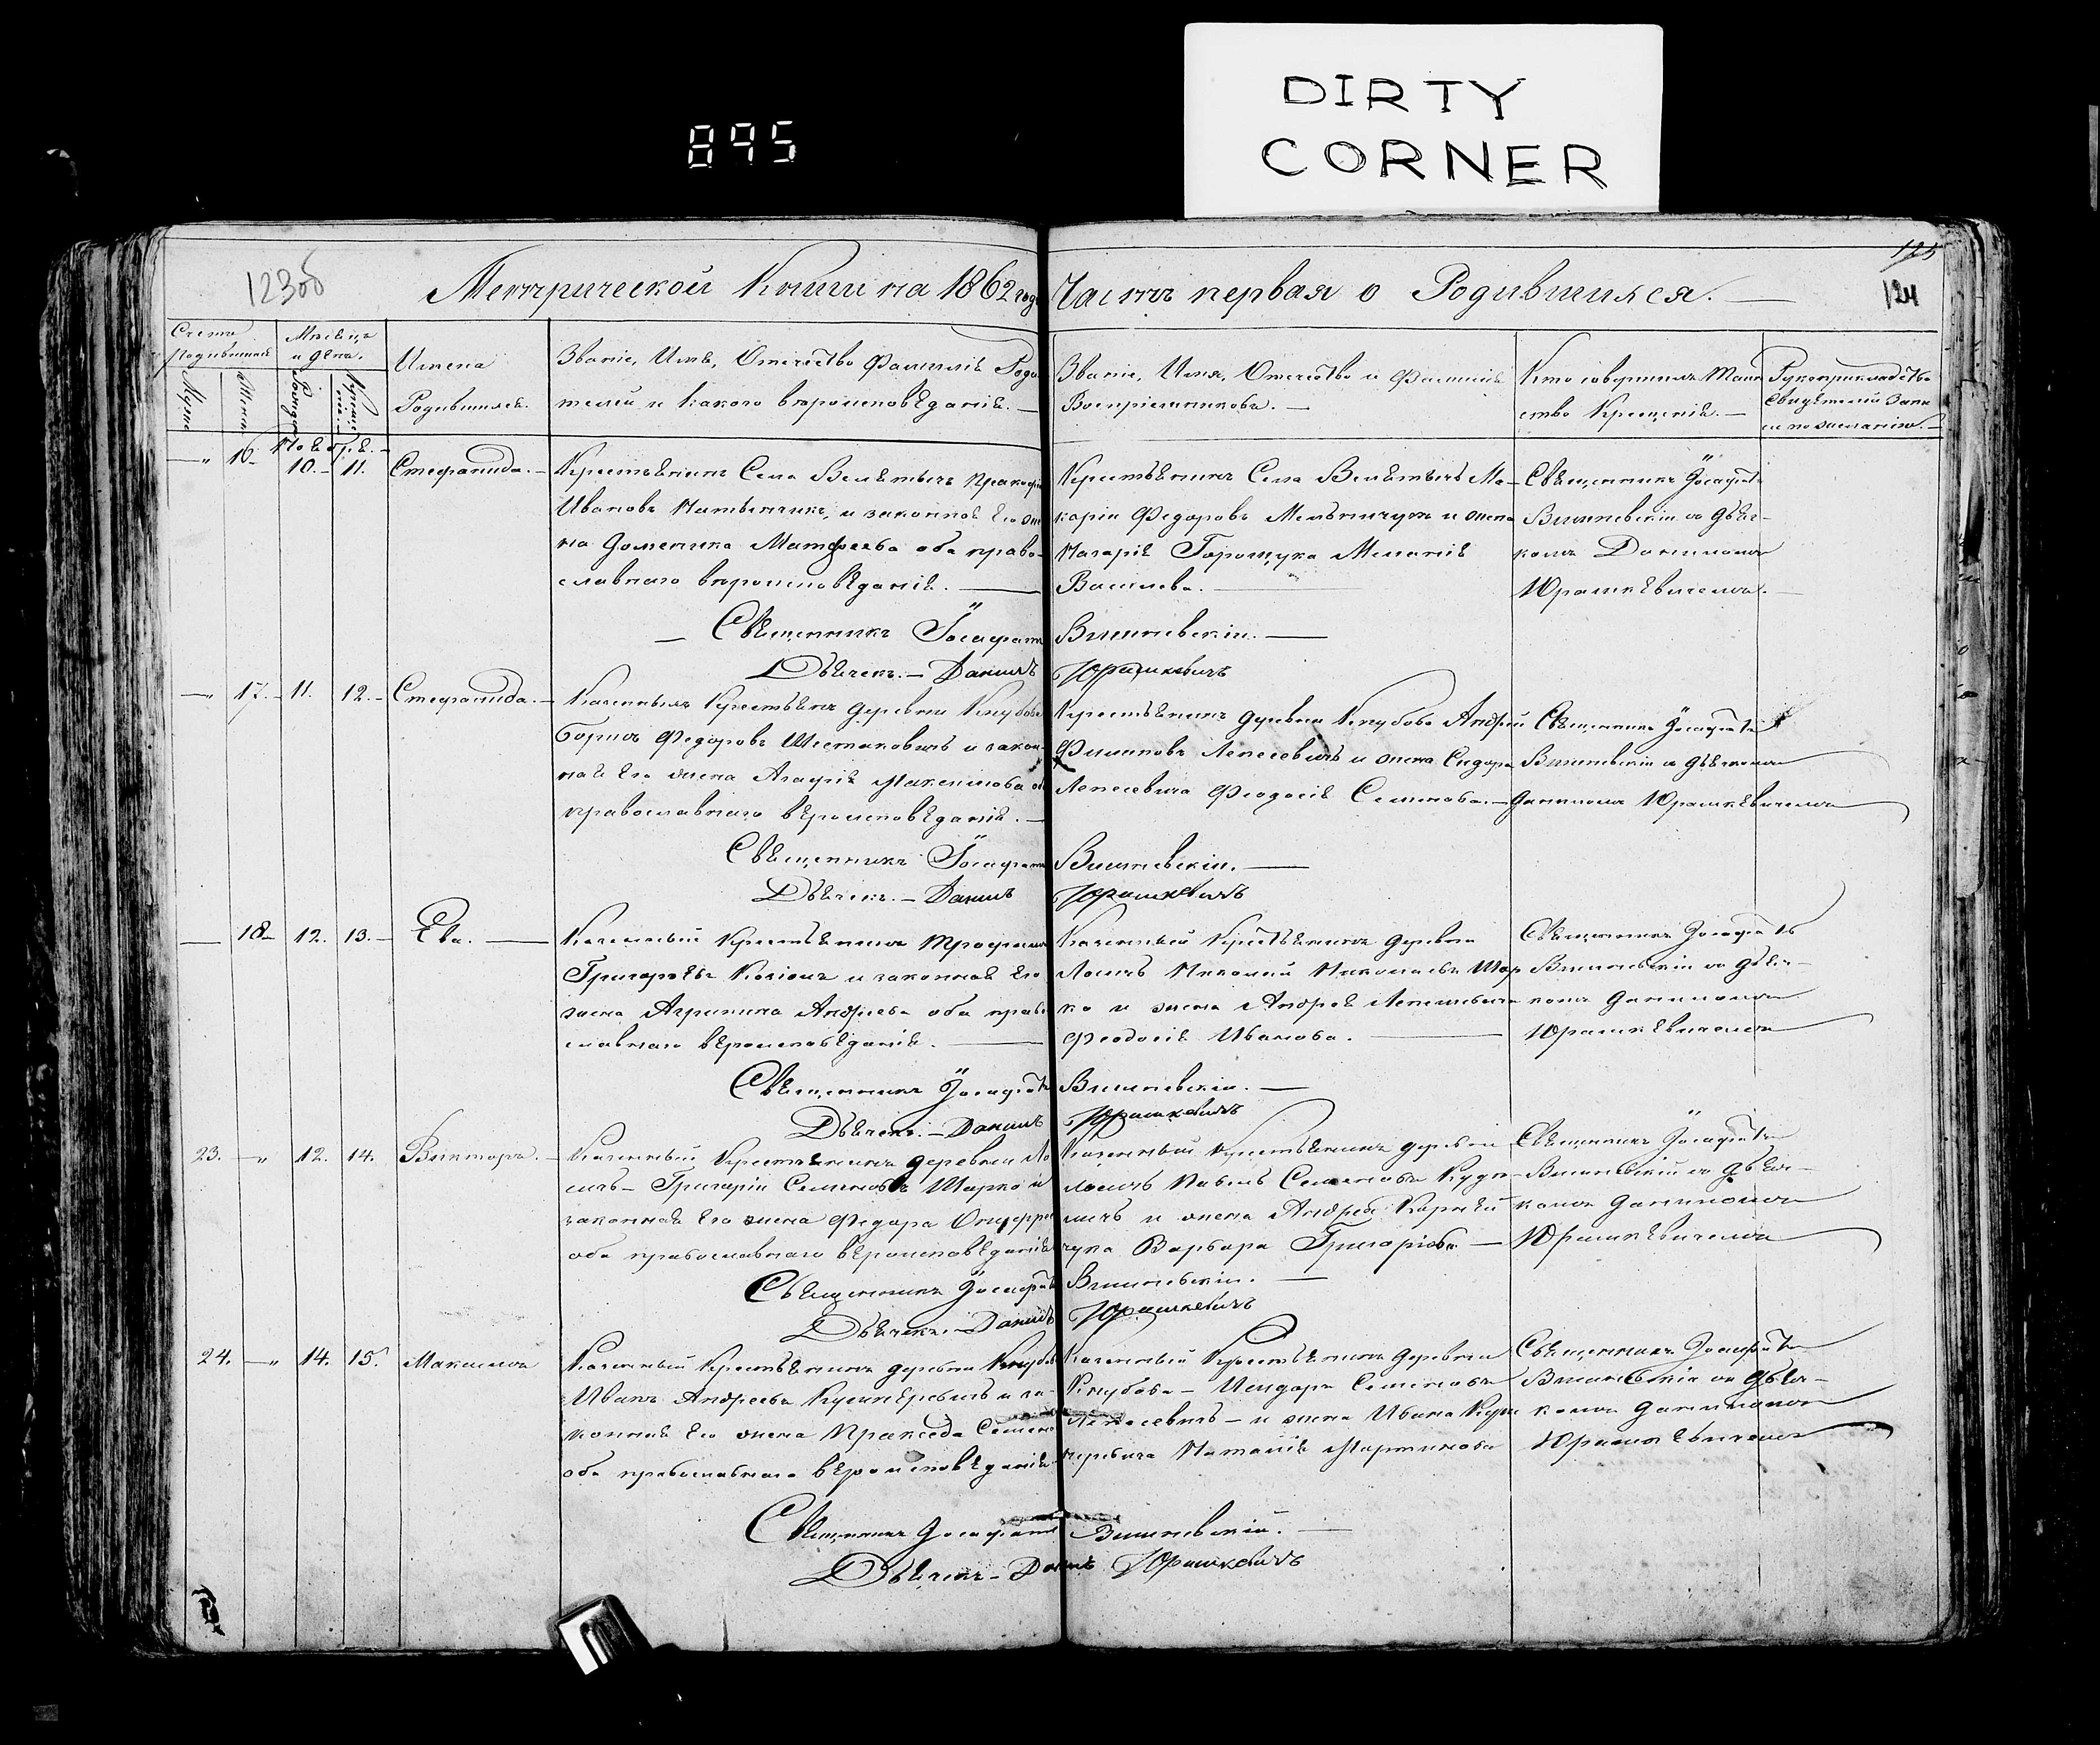 DIRTY
CORNER
895
123об
125
124
Метрической Книги на 1862 года Часть первая о Родившихся.
Счетъ родившихся
Мѣсяцъ и день.
Имена Родившихся.
Званіе, Имя, Отчество Фамилія Родителей и какого вѣроисповѣданія.
Званіе, Имя, Отчество и Фамилія Воспріемниковъ.
Кто совершилъ Таинство Крещенія.
Рукоприкладство свидѣтелей записи по желанію.
Ноябрь.
16. 10. 11. Стефанида.
Крестьянинъ Села Велятичъ
Ивановъ и законная его же-
на Доменика Матфеева оба право-
славнаго вѣроисповѣданія.
Крестьянинъ Села Велятичъ Ма-
карій Федоровъ Мельничукъ и жена
Назарія Горощука Меланія
Васильева.
Священникъ Іосафатъ
Вишневскій съ дьяч-
комъ Даниломъ
Юрашкевичемъ.
Священникъ Іосафатъ Вишневскій.
Дьячекъ.– Данилъ Юрашкевичъ
17. 11. 12. Стефанида.
Казенныхъ Крестьянъ деревни Кнубова
Борисъ Федоровъ Шестаковичъ и закон-
ная его жена Агафія Максимова
православнаго вѣроисповѣданія.
Крестьянинъ деревни Кнубова Андрей
Филиповъ Лепесевичъ и жена Сидора
Лепесевича Феодосія Семенова.
Священникъ Іосафатъ
Вишневскій съ дьячкомъ
Даниломъ Юрашкевичемъ
Священникъ Іосафатъ Вишневскій.
Дьячекъ.– Данилъ Юрашкевичъ
18. 12. 13. Ева.
Казенный Крестьянинъ Трофимъ
Григорьевъ и законная его
жена Агрипина Андреева оба право-
славнаго вѣроисповѣданія.
Казенный Крестьянинъ деревни
Лосичъ Николай Николаевъ Шар-
ко и жена Андрея
Феодосія Иванова.
Священникъ Іосафатъ
Вишневскій съ дьяч-
комъ Даниломъ
Юрашкевичемъ
Священникъ Іосафатъ Вишневскій.
Дьячекъ.– Данилъ Юрашкевичъ
23. 12. 14. Викторъ.
Казенный Крестьянинъ деревни Ло-
сичъ– Григорій Семеновъ Шарко и
законная его жена Федора
оба православнаго вѣроисповѣданія
Казенный Крестьянинъ деревни
Лосичъ Павелъ Семеновъ
и жена Андрея
Варвара Григорьева
Священникъ Іосафатъ
Вишневскій съ дьяч-
комъ Даниломъ
Юрашкевичемъ
Священникъ Іосафатъ Вишневскій.
Дьячекъ.– Данилъ Юрашкевичъ
24. 14. 15. Максимъ
Казенный Крестьянинъ деревни Кнубова
Иванъ Андреевъ и за-
конная его жена Праксѣда
оба православнаго вѣроисповѣданія
Казенный Крестьянинъ деревни
Кнубова– Исидоръ Семеновъ
Лепесевичъ– и жена Ивана
Наталія Мартинова
Священникъ Іосафатъ
Вишневскій съ дьяч-
комъ Даниломъ
Юрашкевичемъ
Священникъ Іосафатъ Вишневскій.
Дьячекъ– Данилъ Юрашкевичъ